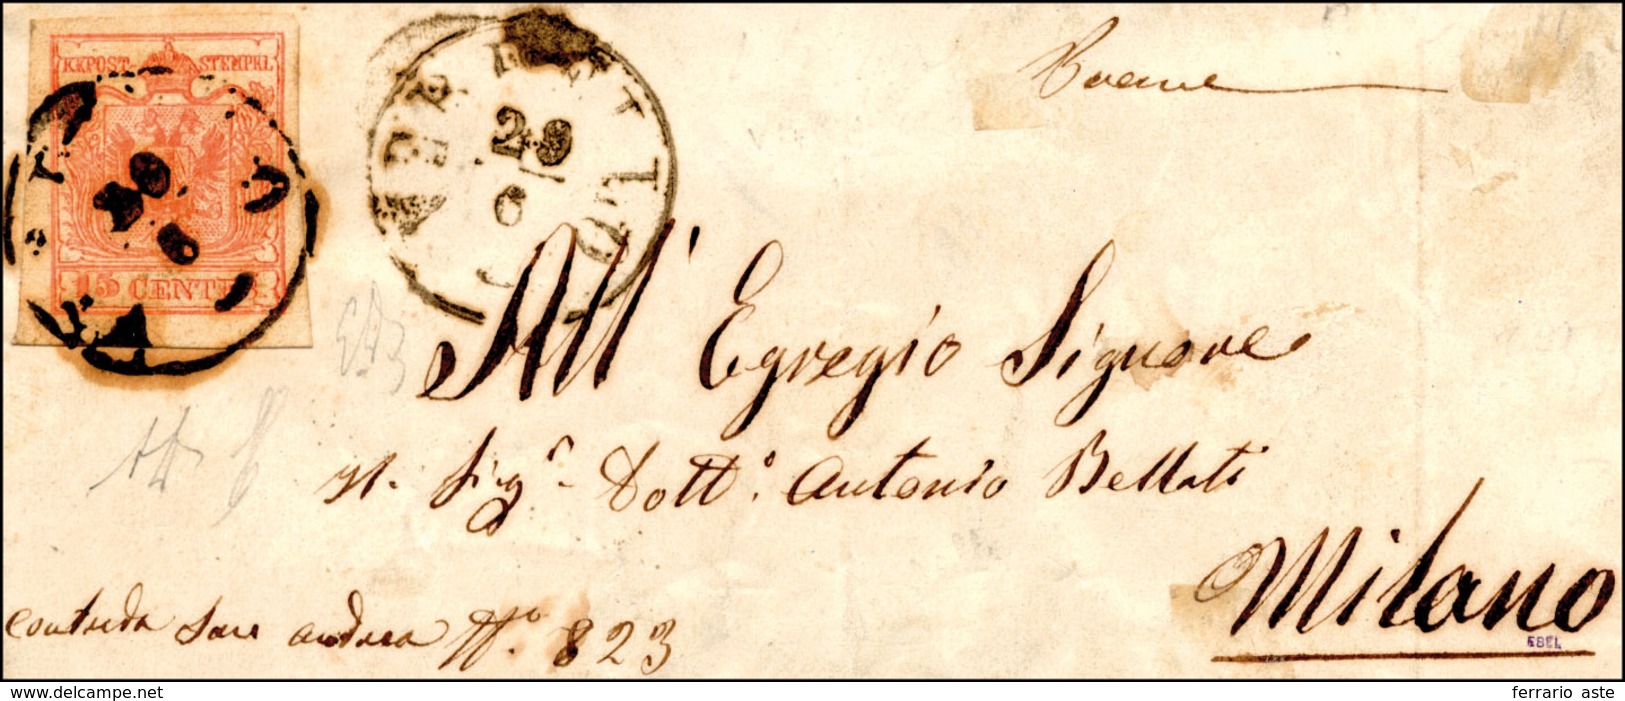 KKPOST-STEMPEL
15 CENTES
29
6
All' Egregio Signore
il Sigr. Dott.o Antonio Bellati
Milano
EBEL
contrada San andrea No. 823
www.delcampe.net
ferrario aste